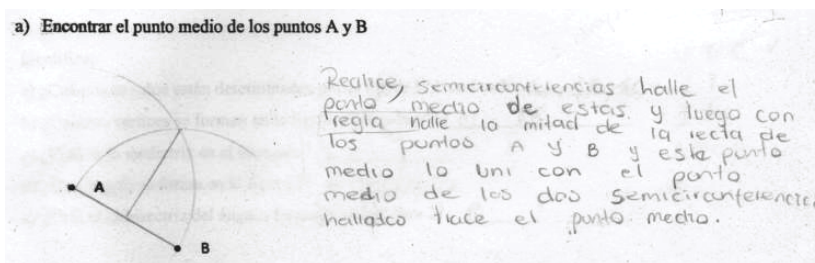 a) Encontrar el punto medio de los puntos A y B
Realice, semicircunferencias halle el
punto medio de estas y luego con
regla halle la mitad de la recta de
los puntos A y B y este punto
medio lo uni con el punto
medio de las dos semicircunferencias
trace el punto medio.
A
B